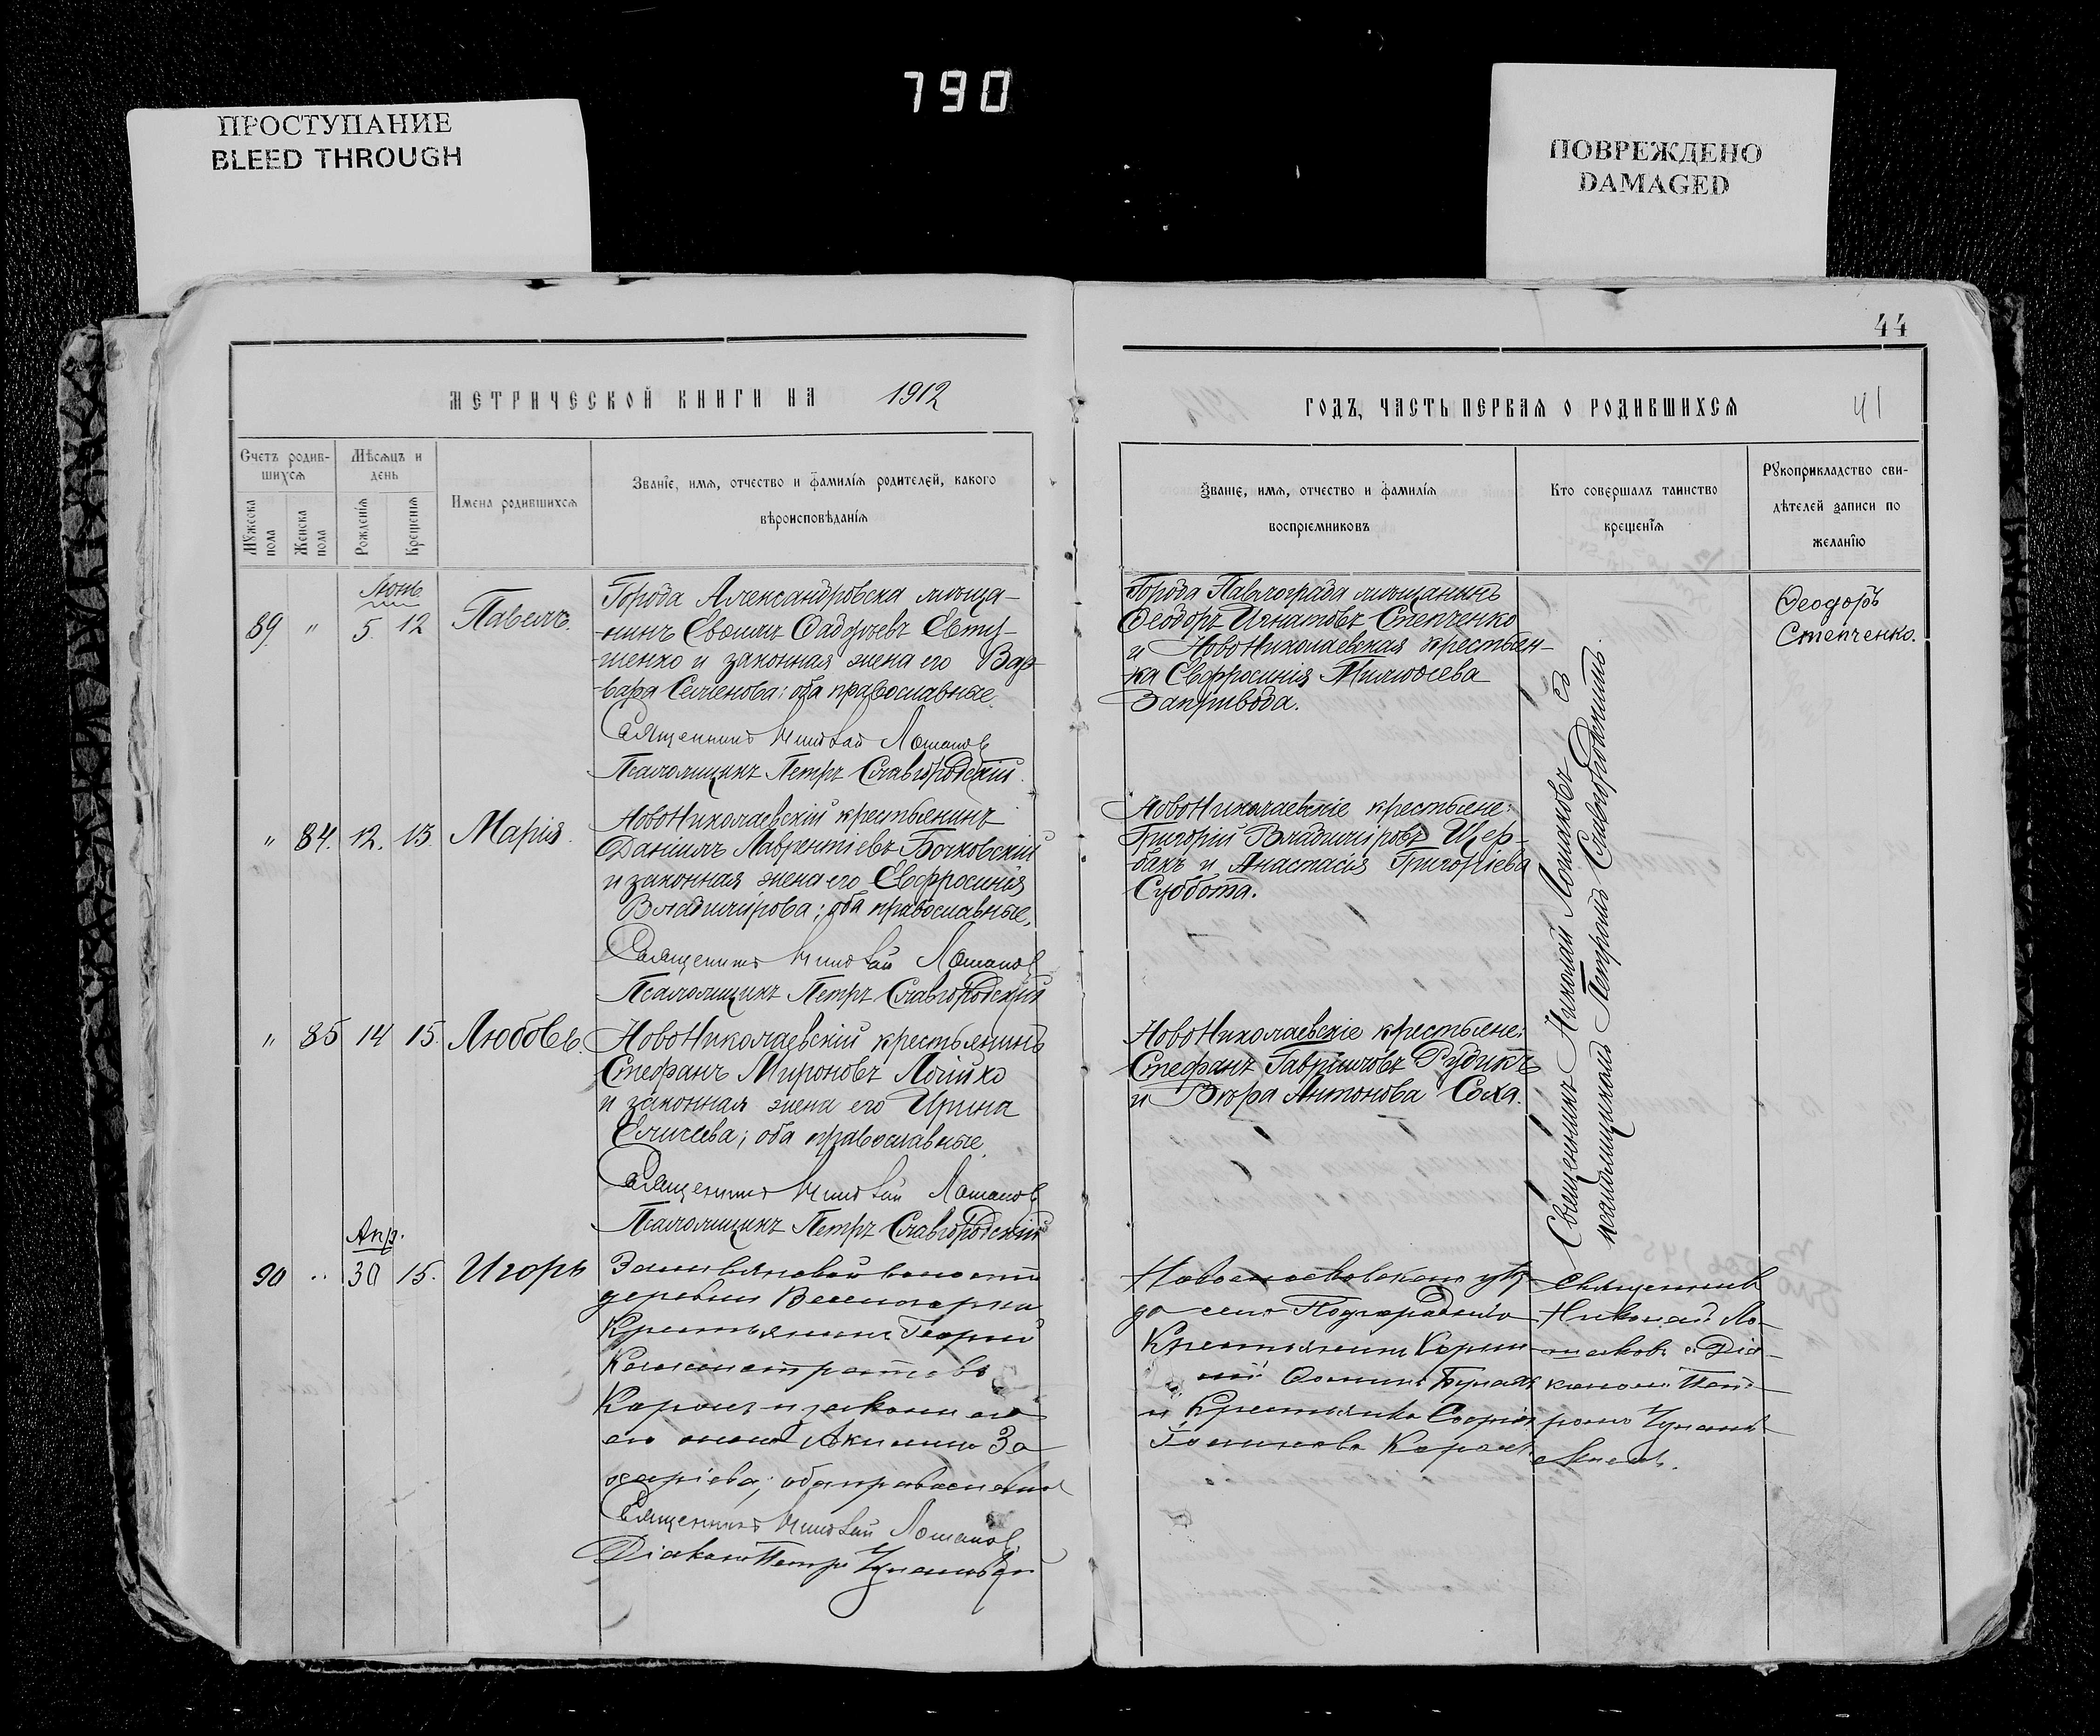 790
ПРОСТУПАНИЕ
BLEED THROUGH
ПОВРЕЖДЕНО
DAMAGED
44
МЕТРИЧЕСКОЙ КНИГИ НА 1912
ГОДЪ, ЧАСТЬ ПЕРВАЯ О РОДИВШИХСЯ
41
Счетъ родив-
шихся
Мужеска
пола
Женска
пола
Мѣсяцъ и
день
Рожденія
Крещенія
Имена родившихся
Званіе, имя, отчество и фамилія родителей, какого
вѣроисповѣданія
Званіе, имя, отчество и фамилія
воспріемниковъ
Кто совершалъ таинство
крещенія
Рукоприкладство сви-
дѣтелей записи по
желанію
Іюнь
89 " 5 12 Павелъ.
Города Александровска мѣща-
нинъ Евту-
шенко и законная жена его Вар-
вара Семенова; оба православные.
Священникъ Николай Ломаковъ
Псаломщикъ Петръ Славгородскій.
Города Павлограда мѣщанинъ
Ѳеодоръ Игнатовъ Степченко
и НовоНиколаевская крестьян-
ка Евфросинія
Запривода.
Ѳеодоръ
Степченко.
Священникъ Николай Ломаковъ съ
псаломщикомъ Петромъ Славгородскимъ.
" 84. 12. 15. Марія.
НовоНиколаевскій крестьянинъ
Даніилъ Лаврентіевъ Бочковскій
и законная жена его Евфросинія
Владимірова; оба православные.
Священникъ Николай Ломаковъ
Псаломщикъ Петръ Славгородскій
НовоНиколаевскіе крестьяне:
Григорій Владиміровъ Щер-
бакъ и Анастасія Григоріева
Суббота.
" 85 14 15. Любовь.
НовоНиколаевскій крестьянинъ
Стефанъ Мироновъ
и законная жена его Ирина
Елисеева; оба православные.
Священникъ Николай Ломаковъ
Псаломщикъ Петръ Славгородскій
НовоНиколаевскіе крестьяне:
Стефанъ Гавріиловъ Рудикъ
и Вѣра Антонова Соха.
Апр.
90 " 30 15. Игорь
волости
деревни Веселогорки
Крестьянинъ Георгій
Каллистратовъ
Король и законная
его жена Акилина За-
харіева; оба православные
Священникъ Николай Ломаковъ.
Діаконъ Петръ
Новомосковскаго уѣз-
да села Подгороднаго
Крестьянинъ
и Крестьянка Софія
Король.
Священникъ
Николай Ло-
маковъ съ Діа-
кономъ Пет-
ромъ